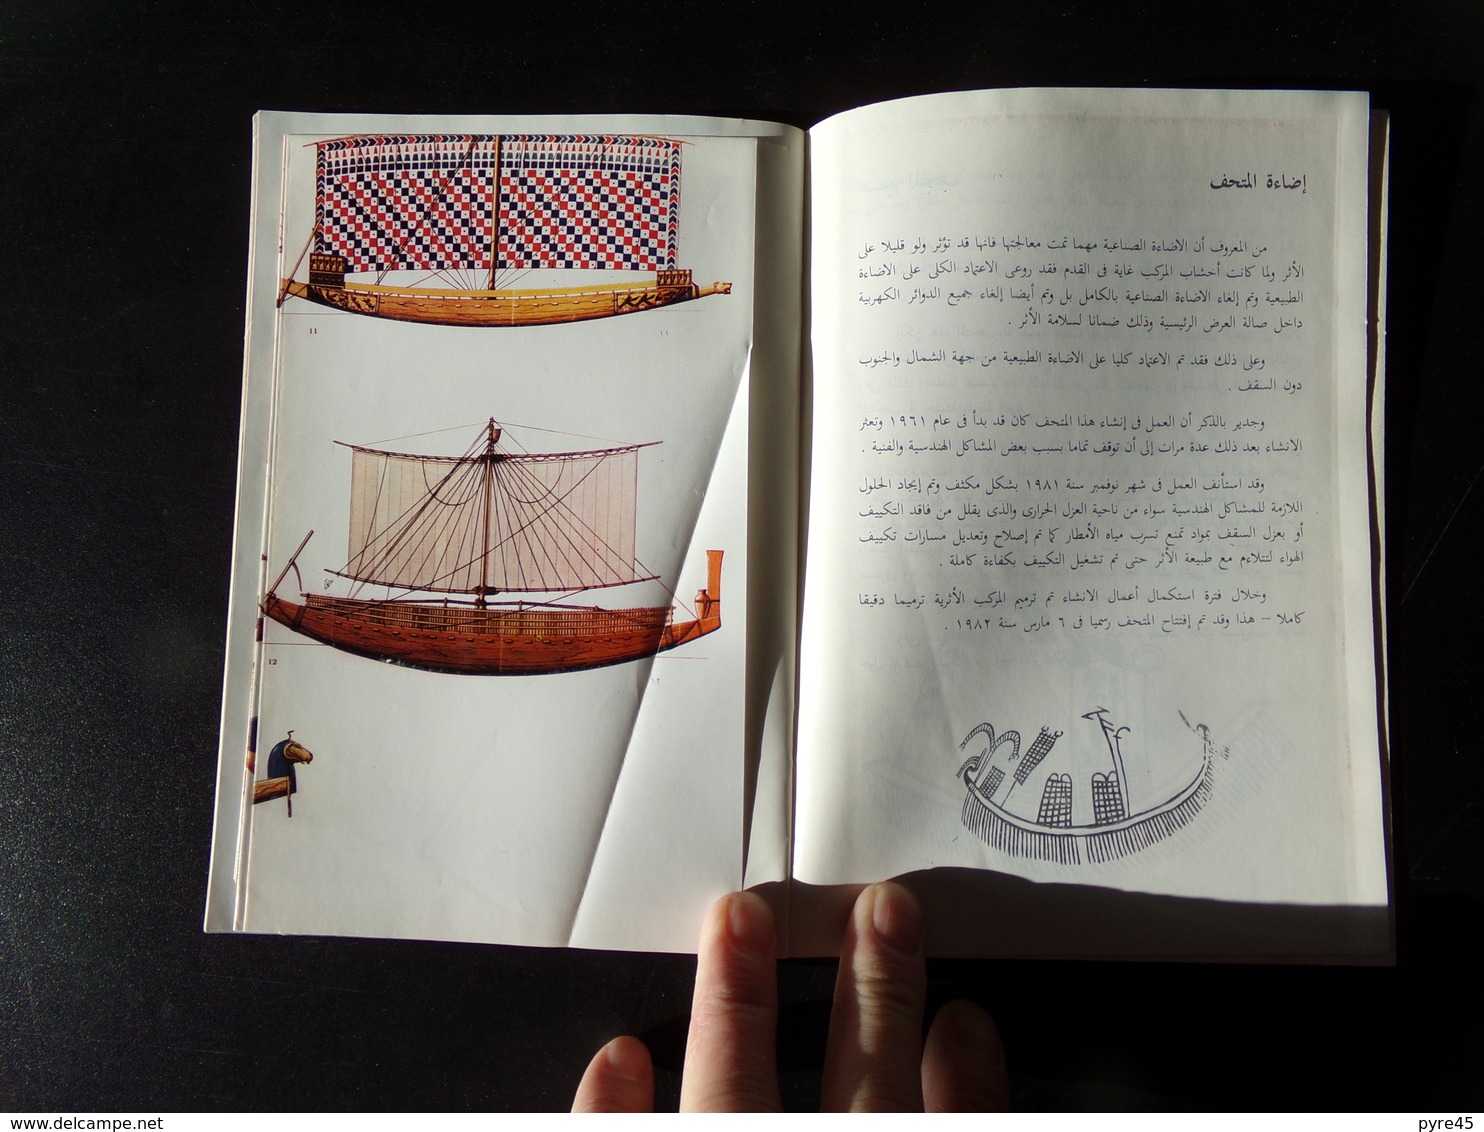 11
١١
12
١٢
إضاءة المتحف
من المعروف أن الاضاءة الصناعية مهما تمت معالجتها فانها قد تؤثر ولو قليلا على
الأثر ولما كانت أخشاب المركب غاية فى القدم فقد روعى الاعتماد الكلى على الاضاءة
الطبيعية وتم إلغاء الاضاءة الصناعية بالكامل بل وتم أيضا إلغاء جميع الدوائر الكهربية
داخل صالة العرض الرئيسية وذلك ضمانا لسلامة الأثر .
وعلى ذلك فقد تم الاعتماد كليا على الاضاءة الطبيعية من جهة الشمال والجنوب
دون السقف .
وجدير بالذكر أن العمل فى إنشاء هذا المتحف كان قد بدأ فى عام ١٩٦١ وتعثر
الانشاء بعد ذلك عدة مرات إلى أن توقف تماما بسبب بعض المشاكل الهندسية والفنية .
وقد استأنف العمل فى شهر نوفمبر سنة ١٩٨١ بشكل مكثف وتم إيجاد الحلول
اللازمة للمشاكل الهندسية سواء من ناحية العزل الحرارى والذى يقلل من فاقد التكييف
أو بعزل السقف بمواد تمنع تسرب مياه الأمطار كما تم إصلاح وتعديل مسارات تكييف
الهواء لتتلاءم مع طبيعة الأثر حتى تم تشغيل التكييف بكفاءة كاملة .
وخلال فترة استكمال أعمال الانشاء تم ترميم المركب الأثرية ترميما دقيقا
كاملا – هذا وقد تم إفتتاح المتحف رسميا فى ٦ مارس سنة ١٩٨٢ .
www.delcampe.net
pyre45